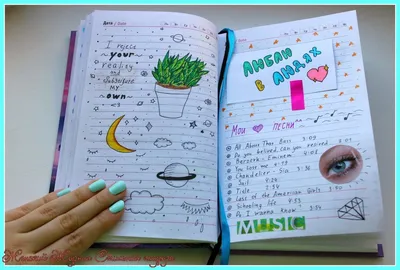 Дата / Date
I reject
~your~
reality
and
substitute
my
own
<3
ЛЮБЛЮ
В ЛЮДЯХ
Мои ♥ песни
All About That Bass 3:09
Do you belived can you revived 3:01
Berzerk - Eminem 4:08
You Love me 4:19
Chandelier - Sia 3:51
Sail 4:34
Title 2:54
Last of the American Girls 3:50
Schooling life 4:33
Do I wanna Know 3:4
MUSIC